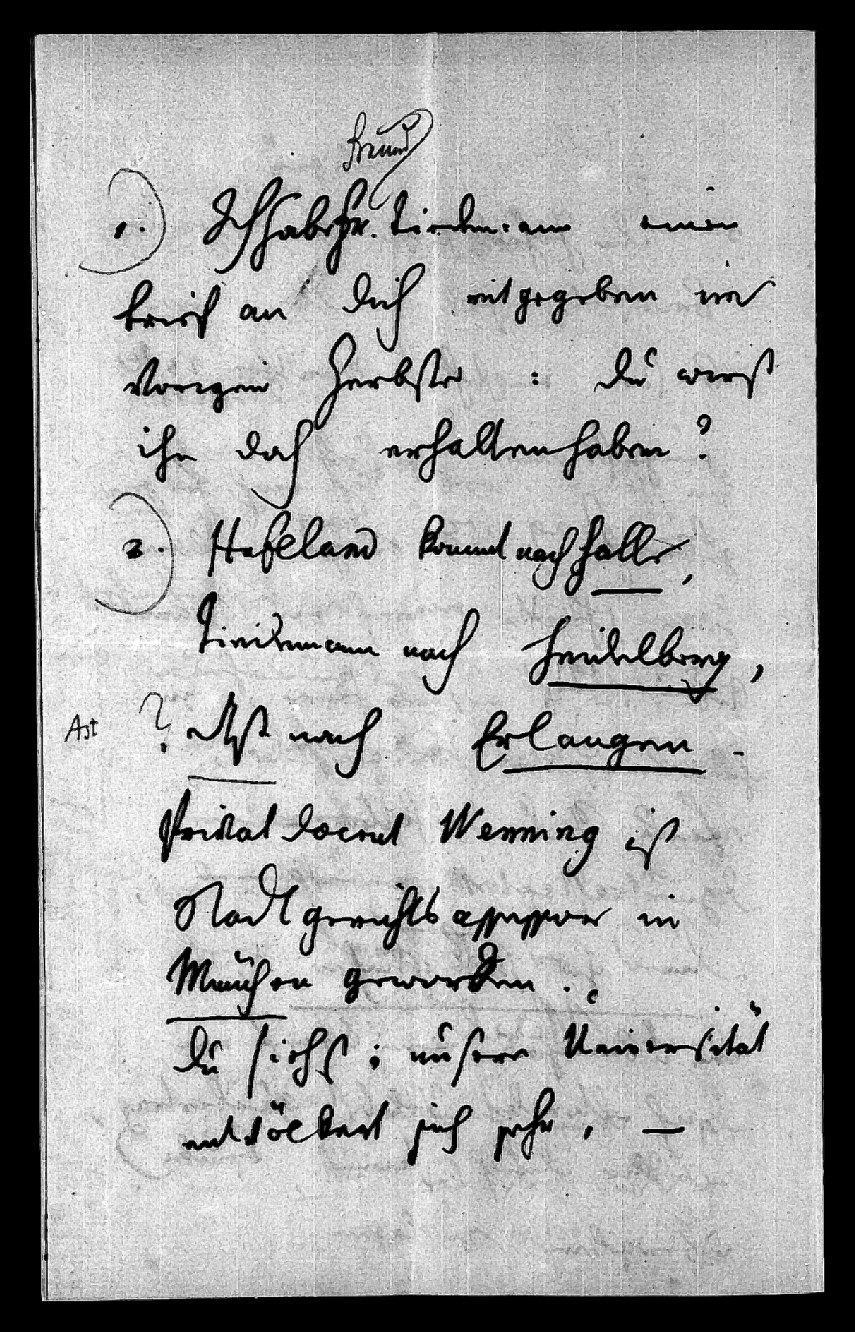 Freund
1.) Ich habe Hr. Tiedemann einen
brief an dich mitgegeben im
vorigen Herbste: du wirst
ihn doch erhalten haben?
2.) Hufeland kommt nach Halle,
Tiedemann nach Heidelberg,
Ast ? Ast nach Erlangen -
Privat docent Wenning ist
Stadtgerichts assessor in
München geworden.
du siehst; unsere Universität
entvölkert sich sehr. —